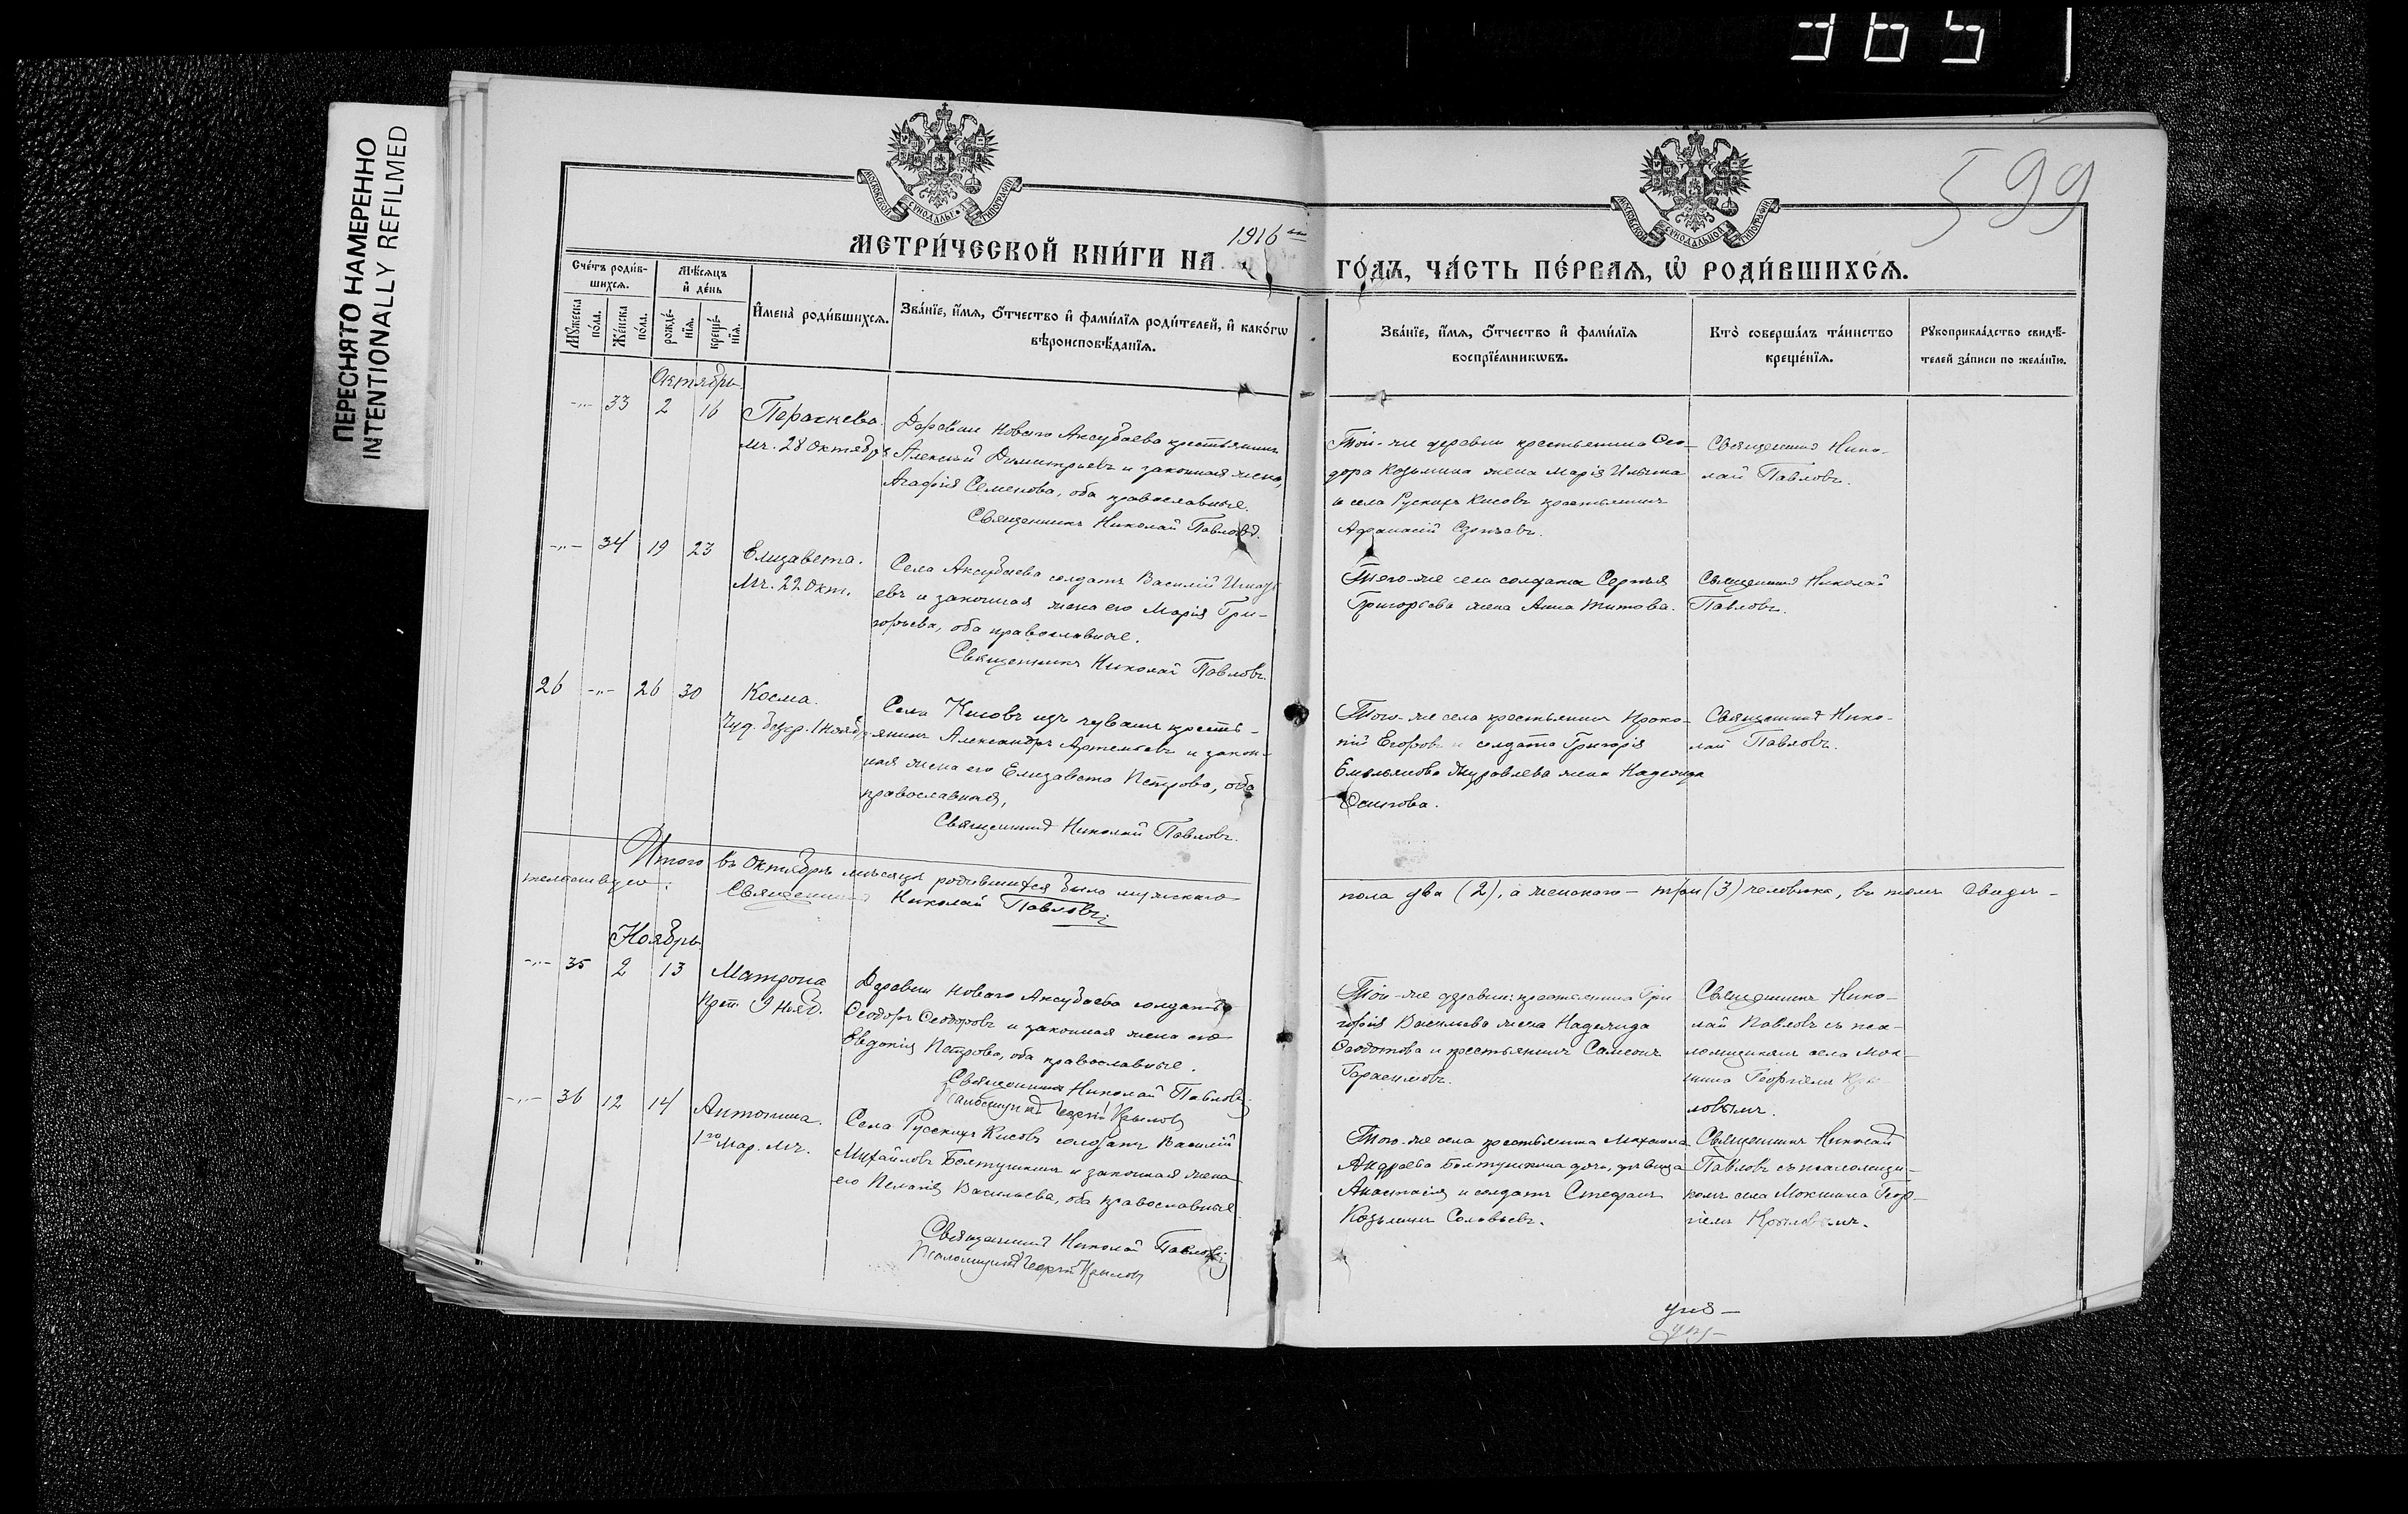 365
ПЕРЕСНЯТО НАМЕРЕННО
INTENTIONALLY REFILMED
599
МОСКОВСКОЙ СѴНОДАЛЬНОЙ ТИПОГРАФІИ
МОСКОВСКОЙ СѴНОДАЛЬНОЙ ТИПОГРАФІИ
МЕТРИ́ЧЕСКОЙ КНИ́ГИ НА 1916
ГО́ДЪ, ЧА́СТЬ ПЕ́РВАѦ, Ѡ҆ РОДИ́ВШИХСѦ.
Сче́тъ роди́в-
шихсѧ.
Мꙋжеска по́ла.
Же́нска по́ла.
Мѣ́сѧцъ
и҆ де́нь
рожде́-
нїѧ.
креще́-
нїѧ.
И҆мена̀ роди́вшихсѧ.
Зва́нїе, и҆́мѧ, ѻ҆́тчество и҆ фами́лїѧ роди́телей, и҆ како́гѡ
вѣроисповѣ́данїѧ.
Зва́нїе, и҆́мѧ, ѻ҆́тчество и҆ фами́лїѧ
воспрїе́мникѡвъ.
Кто̀ соверша́лъ та́инство
креще́нїѧ.
Рꙋкоприкла́дство свидѣ́-
телей за́писи по жела́нїю.
Октябрь.
-„- 33 2 16
Параскева.
мч. 28 Октября
Деревни Новаго Аксубаева крестьянинъ
Алексѣй Димитріевъ и законная жена,
Агафія Семенова, оба православные.
Священникъ Николай Павловъ.
Той-же деревни крестьянина Ѳео-
дора Козьмина жена Марія Ильина
и села Рускихъ Кисовъ крестьянинъ
Афанасій
Священникъ Нико-
лай Павловъ.
-„- 34 19 23
Елизавета.
Мч. 22 Окт.
Села Аксубаева солдатъ Василій Игнать-
евъ и законная жена его Марія Гри-
горьева, оба православные.
Священникъ Николай Павловъ.
Того-же села солдата Сергѣя
Григорьева жена Анна Титова.
Священникъ Николай
Павловъ.
26 -„- 26 30
Косма.
Чуд. безср. 1 Нояб.
Села Кисовъ изъ чувашъ кресть-
янинъ Александръ Артемьевъ и закон-
ная жена его Елизавета Петрова, оба
православныя,
Священникъ Николай Павловъ.
Того-же села крестьянинъ Проко-
пій Егоровъ и солдата Григорія
Емельянова Журавлева жена Надежда
Осипова.
Священникъ Нико-
лай Павловъ.
Итого въ Октябрѣ мѣсяцѣ родившихся было мужскаго
пола два (2), а женскаго - три (3) человѣка, въ томъ свидѣ-
тельствуетъ:
Священникъ Николай Павловъ.
Ноябрь.
-„- 35 2 13
Матрона
Прп. 9 Нояб.
Деревни Новаго Аксубаева солдатъ
Ѳеодоръ Ѳеодоровъ и законная жена его
Евдокія Петрова, оба православные.
Священникъ Николай Павловъ.
Псаломщикъ Георгій Крыловъ
Той-же деревни: крестьянина Гри-
горія Васильева жена Надежда
Ѳеодотова и крестьянинъ Самсонъ
Герасимовъ.
Священникъ Нико-
лай Павловъ съ пса-
ломщикомъ села Мок-
шина Георгіемъ Кры-
ловымъ.
-„- 36 12 14
Антонина.
1го Мар. мч.
Села Русскихъ Кисовъ солдатъ Василій
Михайловъ Болтушкинъ и законная жена
его Пелагія Васильева, оба православные.
Священникъ Николай Павловъ
Псаломщикъ Георгій Крыловъ
Того-же села крестьянина Михаила
Андреева Болтушкина дочь, дѣвица
Анастасія и солдатъ Стефанъ
Козьминъ Соловьевъ.
Священникъ Николай
Павловъ съ псаломщи-
комъ села Мокшина Геор-
гіемъ Крыловымъ.